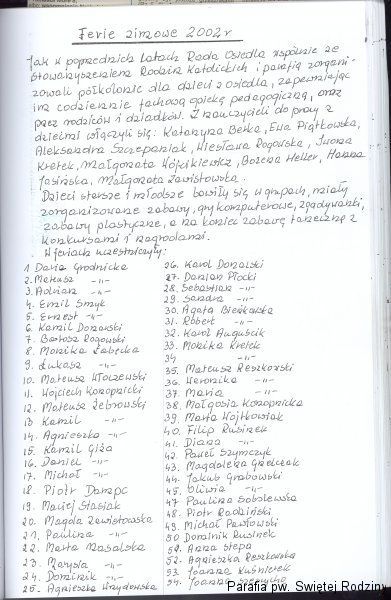 Ferie zimowe 2002r
Jak w poprzednich latach Rada Osiedla wspólnie ze
Stowarzyszeniem Rodzin Katolickich i parafią zorgani-
zowali półkolonie dla dzieci z osiedla, zapewniając
im codziennie fachową opiekę pedagogiczną, oraz
przez rodziców i dziadków. Z nauczycieli do pracy z
dziećmi włączyli się: Katarzyna Berka, Ewa Piątkowska,
Aleksandra Szczepaniak, Wiesława Rogowska, Iwona
Kretek, Małgorzata Wójcikiewicz, Bożena Heller, Hanna
Jasińska, Małgorzata Zawistowska.
Dzieci starsze i młodsze bawiły się w grupach, miały
zorganizowane zabawy, gry komputerowe, zgadywanki,
zabawy plastyczne, a na koniec zabawę taneczną z
konkursami i nagrodami.
W feriach uczestniczyli:
1 Daria Grodnicka
2. Mateusz -"-
3. Adrian -"-
4. Emil Smyk
5. Ernest -"-
6. Kamil Donowski
7. Bartosz Rogowski
8. Monika Zabęcka
9. Łukasz -"-
10. Mateusz Włoczewski
11. Wojciech Konopnicki
12. Mateusz Żebrowski
13 Kamil -"-
14. Agnieszka -"-
15. Kamil Giża
16. Daniel -"-
17. Michał -"-
18. Piotr Dampc
19. Maciej Stasiak
20. Magda Zawistowska
21. Paulina -"-
22. Marta Masalska
23. Marysia -"-
24. Dominik -"-
25. Agnieszka
26. Karol Donalski
27. Damian Płocki
28. Sebastian -"-
29. Sandra -"-
30. Agata Bieńkowska
31. Robert -"-
32. Karol Auguścik
33. Monika Kretek
34 -"-
35. Mateusz Reszkowski
36. Weronika -"-
37. Maria -"-
38. Małgosia Konopnicka
39. Marta Wojtkowiak
40. Filip Rusinek
41. Diana -"-
42. Paweł Szymczyk
43. Magdalena
44. Jakub Grabowski
45. Oliwia -"-
47 Paulina Sobolewska
48. Piotr Radziński
49. Michał Pawłowski
50 Dominik Rusinek
51. Anna Stepa
52. Agnieszka Reszkowska
53 Joanna Kuśnierek
54. Joanna
Parafia pw. Swietej Rodziny